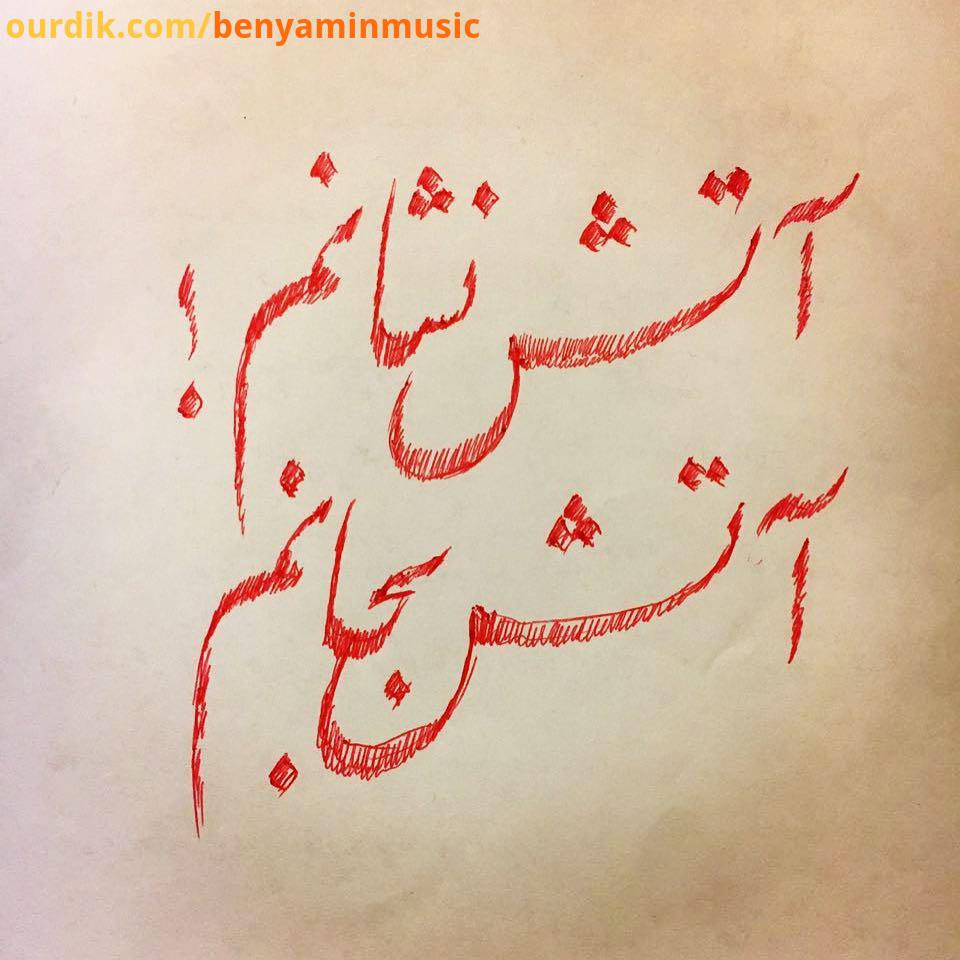 ourdik.com/benyaminmusic
آتش نشانم !
آتش بجانم